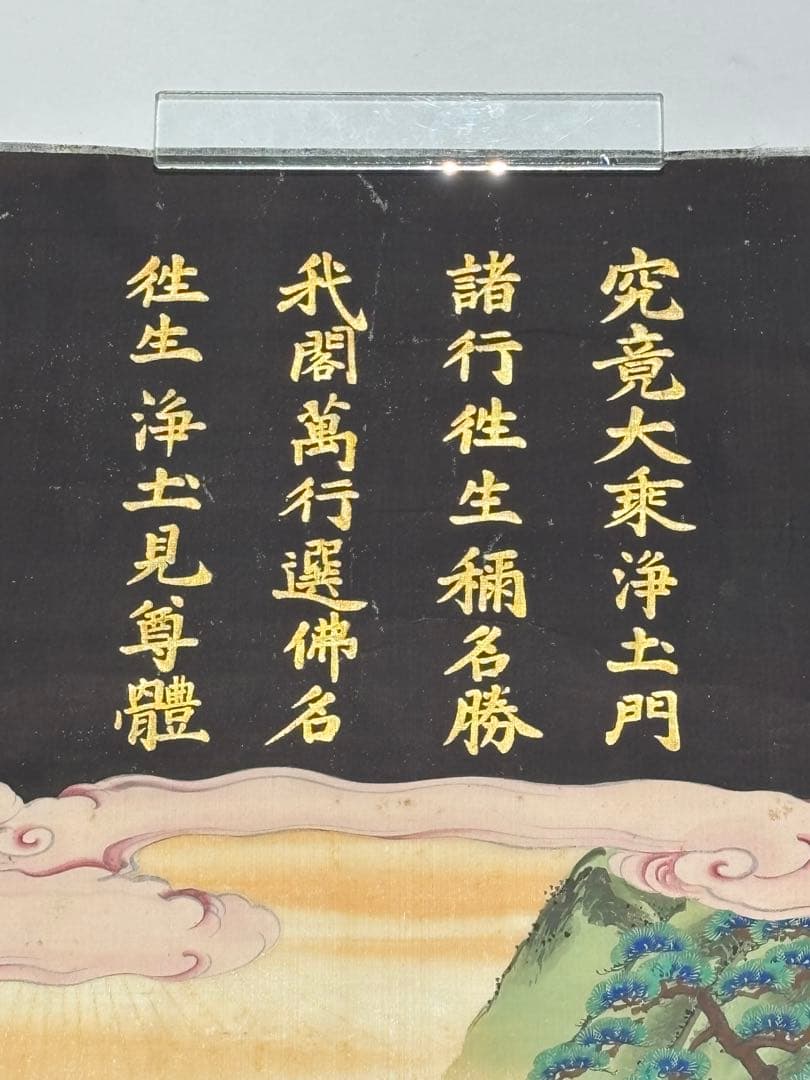 究竟大乗浄土門
諸行徃生稱名勝
我閣萬行選佛名
徃生浄土見尊體